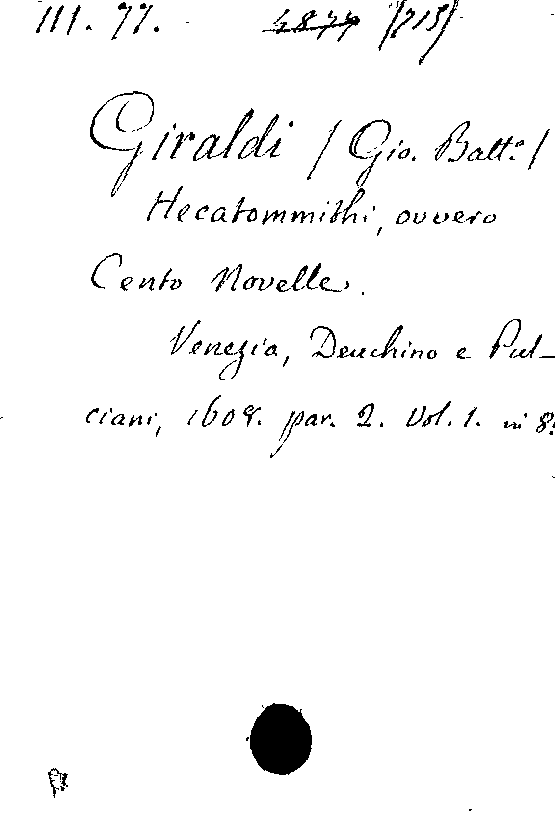 III. 77. 4874 (713)
Giraldi / Gio. Batt.a /
Hecatommithi, ovvero
Cento Novelle.
Venezia, Deuchino e Pul-
ciani, 1608. par. 2. Vol. 1. in 8.